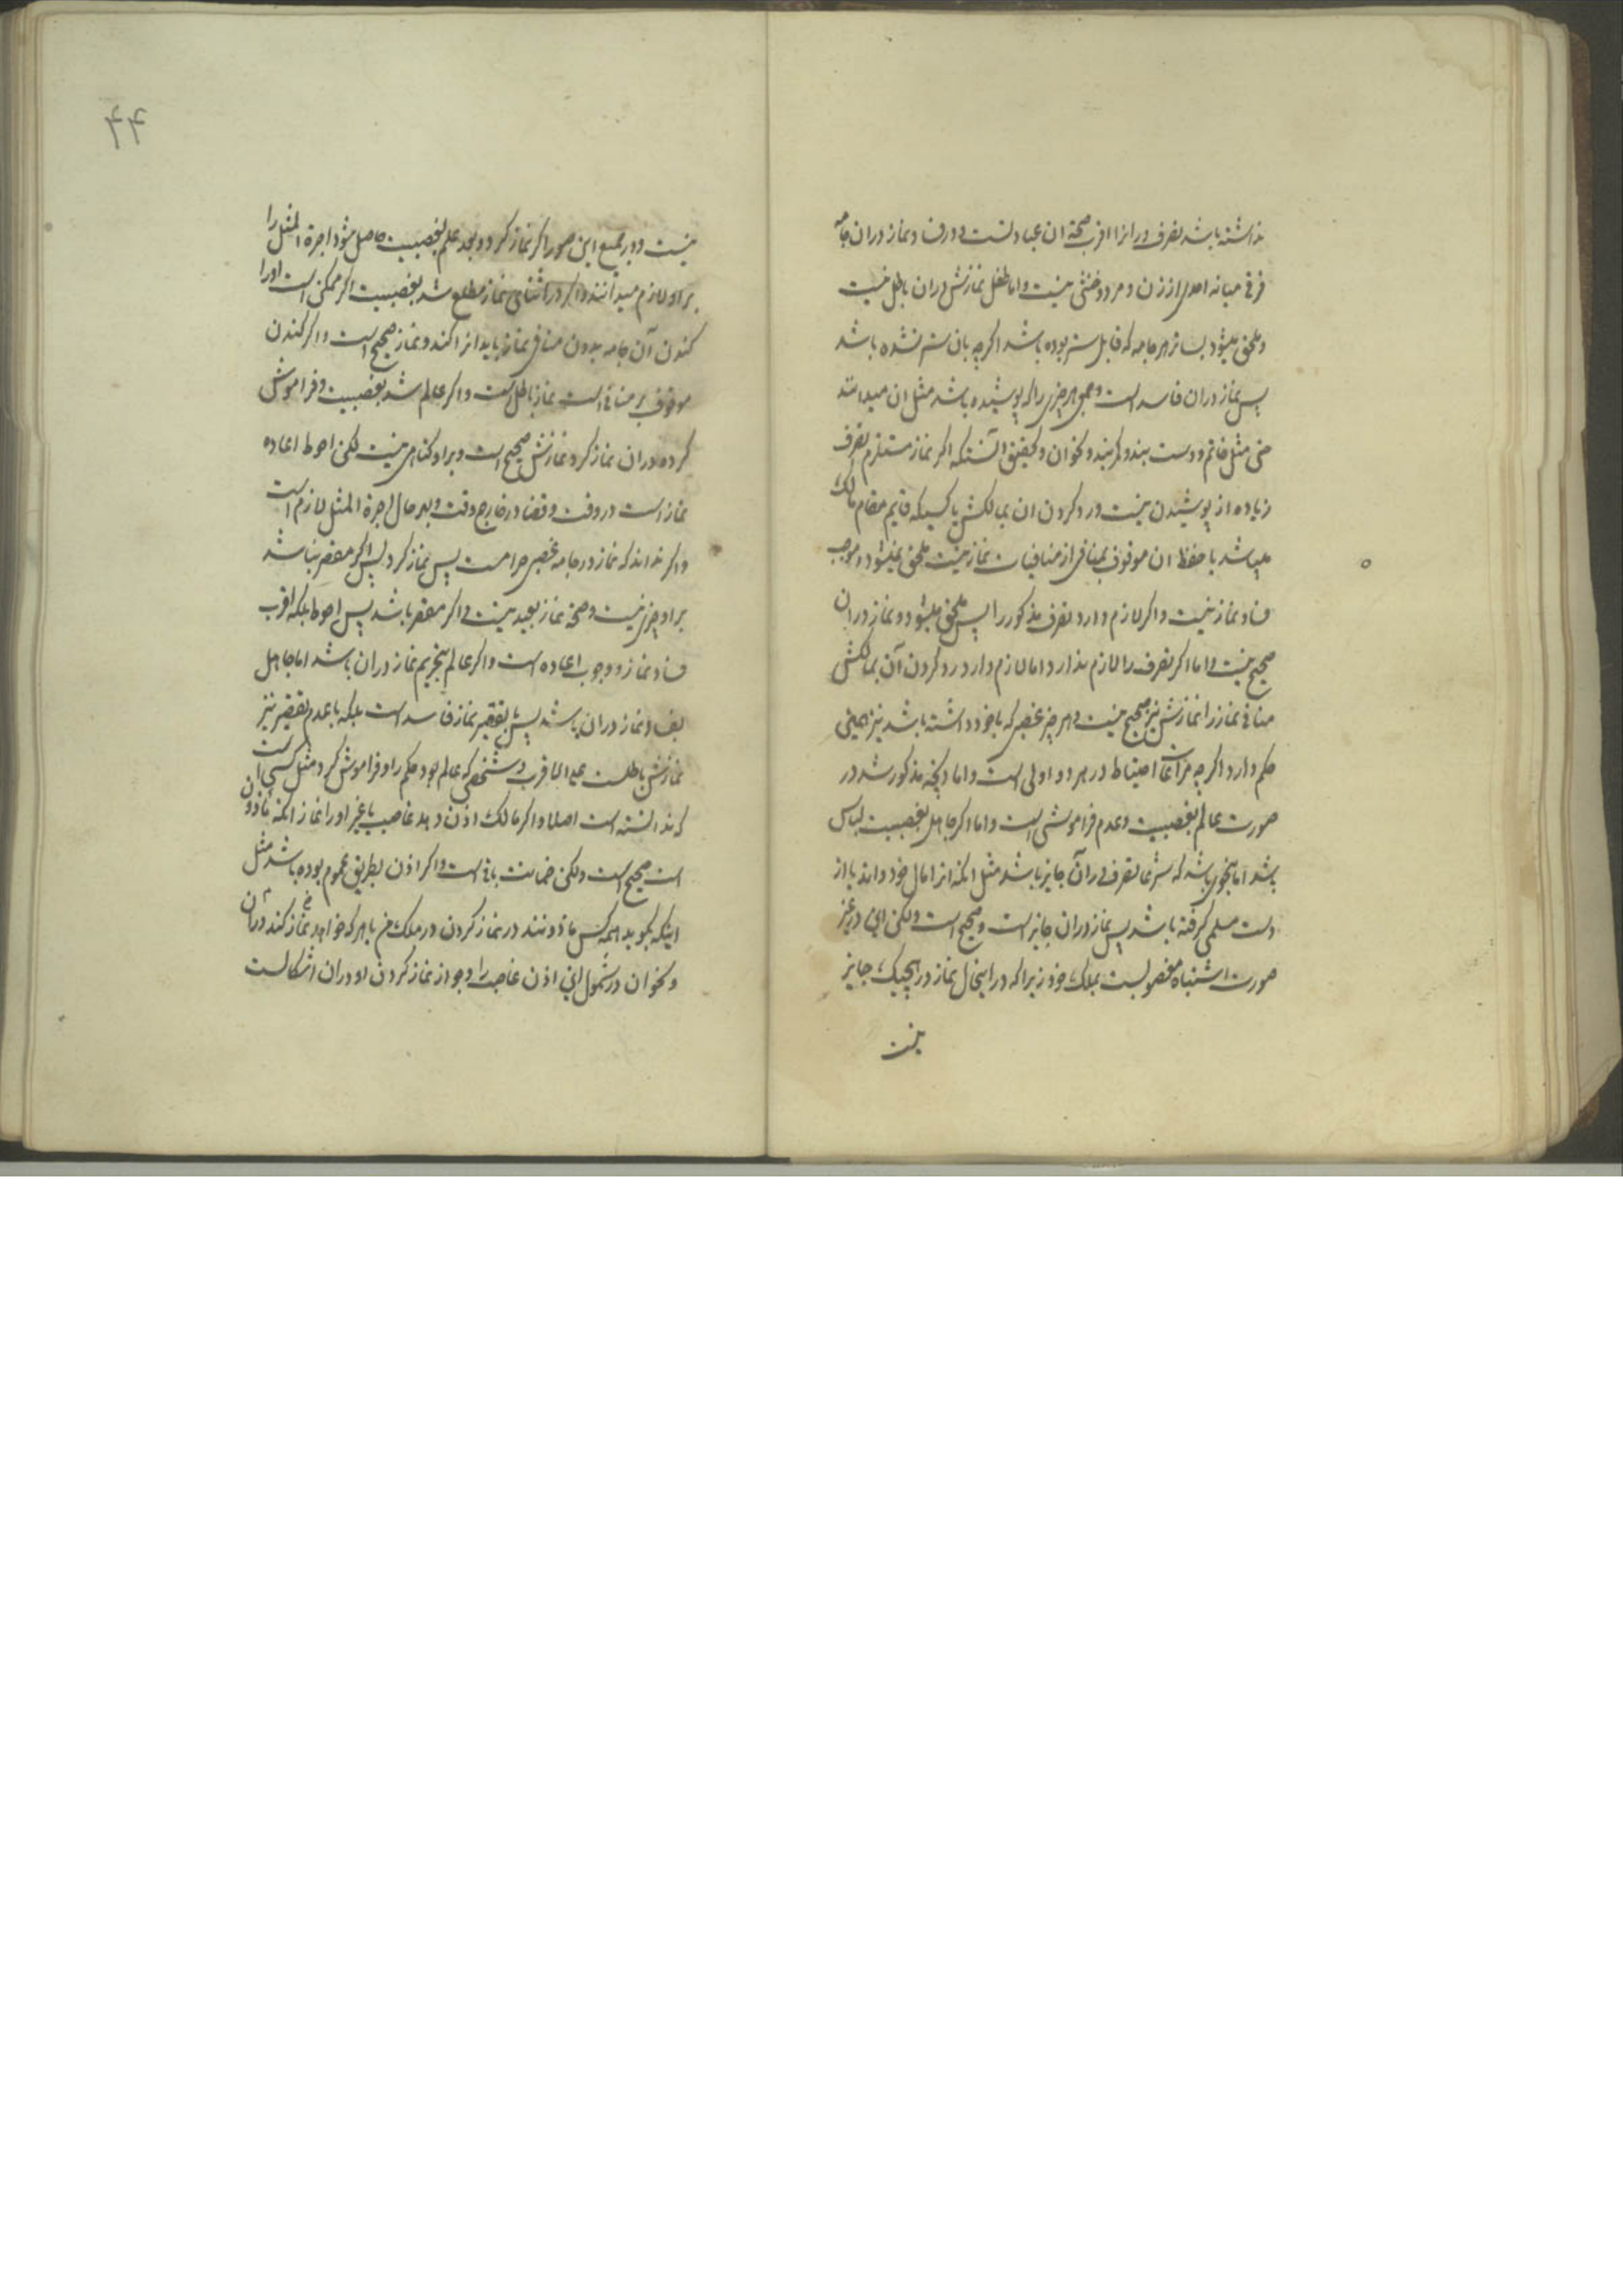 نداشته باشد تصرف در انرا اقرب صحة ان عبادتست و در فساد نماز در ان جامه
فرقی میانه احدی از زن و مرد و خنثی نیست و اما طفل نمازش در ان باطل نیست
و ملحق میشود بساتر هر جامه که قابل ستر بوده باشد اگر چه بان ستر نشده باشد
پس نماز در ان فاسد است و جمعی هر چیزی را که پوشیده باشد مثل ان میدانند
حتی مثل خاتم و دست بند و کمربند و نحو ان و تحقیق آنستکه اگر نماز مستلزم تصرف
زیاده از پوشیدن نیست و رد کردن ان بمالکش یا کسیکه قایم مقام مالک
میباشد با حفظ ان موقوف بمنافی از منافیات نماز نیست ملحق نمیشود و موجب
فساد نماز نیست و اگر لازم دارد تصرف مذکور را پس ملحق میشود و نماز در ان
صحیح نیست و اما اگر تصرف را لازم ندارد اما لازم دارد رد کردن آن بمالکش
منافی نماز را نمازش نیز صحیح نیست و هر چیز غصبی که با خود داشته باشد نیز همین
حکم دارد اگر چه مراعات احتیاط در هر دو اولی است و اما آنچه مذکور شد در
صورت عالم بغصبیت و عدم فراموشی است و اما اگر جاهل بغصبیت لباس
باشد اما بنحوی باشد که شرعا تصرف در آن جایز باشد مثل انکه انرا مال خود داند یا از
دست مسلمی گرفته باشد پس نماز در ان جایز است و صحیح است ولکن این در غیر
صورت اشتباه مغصوبست بملک خود زیرا که در اینحال نماز در هیچیک جایز
نیست
۴۴
نیست و در جمیع این صور اگر نماز کرد و بعد علم بغصبیت حاصل شود اجرة المثل را
بر او لازم میدانند و اگر در اثنای نماز مطلع شد بغصبیت اگر ممکن است او را
کندن آن جامه بدون منافی نماز باید انرا کند و نماز صحیح است و اگر کندن
موقوف بر منافی است نماز باطل است و اگر عالم شد بغصبیت و فراموش
کرده در ان نماز کرد نمازش صحیح است و بر او گناهی نیست لکن احوط اعاده
نماز است در وقت و قضا در خارج وقت و بهر حال اجرة المثل لازم است
و اگر نداند که نماز در جامه غصبی حرامست پس نماز کرد پس اگر مقصر نباشد
بر او چیزی نیست و صحة نماز بعید نیست و اگر مقصر باشد پس احوط بلکه اقرب
فساد نماز و وجوب اعاده است و اگر عالم بتحریم نماز در ان باشد اما جاهل
بفساد نماز در ان باشد پس با تقصیر نماز فاسد است بلکه با عدم تقصیر نیز
نمازش باطلست علی الاقرب و شخصی که عالم بود حکم را و فراموش کرد مثل کسی است
که ندانسته است اصلا و اگر مالک اذن دهد غاصب یا غیر او را نماز انکه مأذون
است صحیح است ولکن ضمانت باقی است و اگر اذن بطریق عموم بوده باشد مثل
اینکه بگوید همه کس ماذونند در نماز کردن در ملک من یا هر که خواهد نماز کند در ان
و نحو ان در شمول این اذن غاصب را و جواز نماز کردن او در ان اشکالست